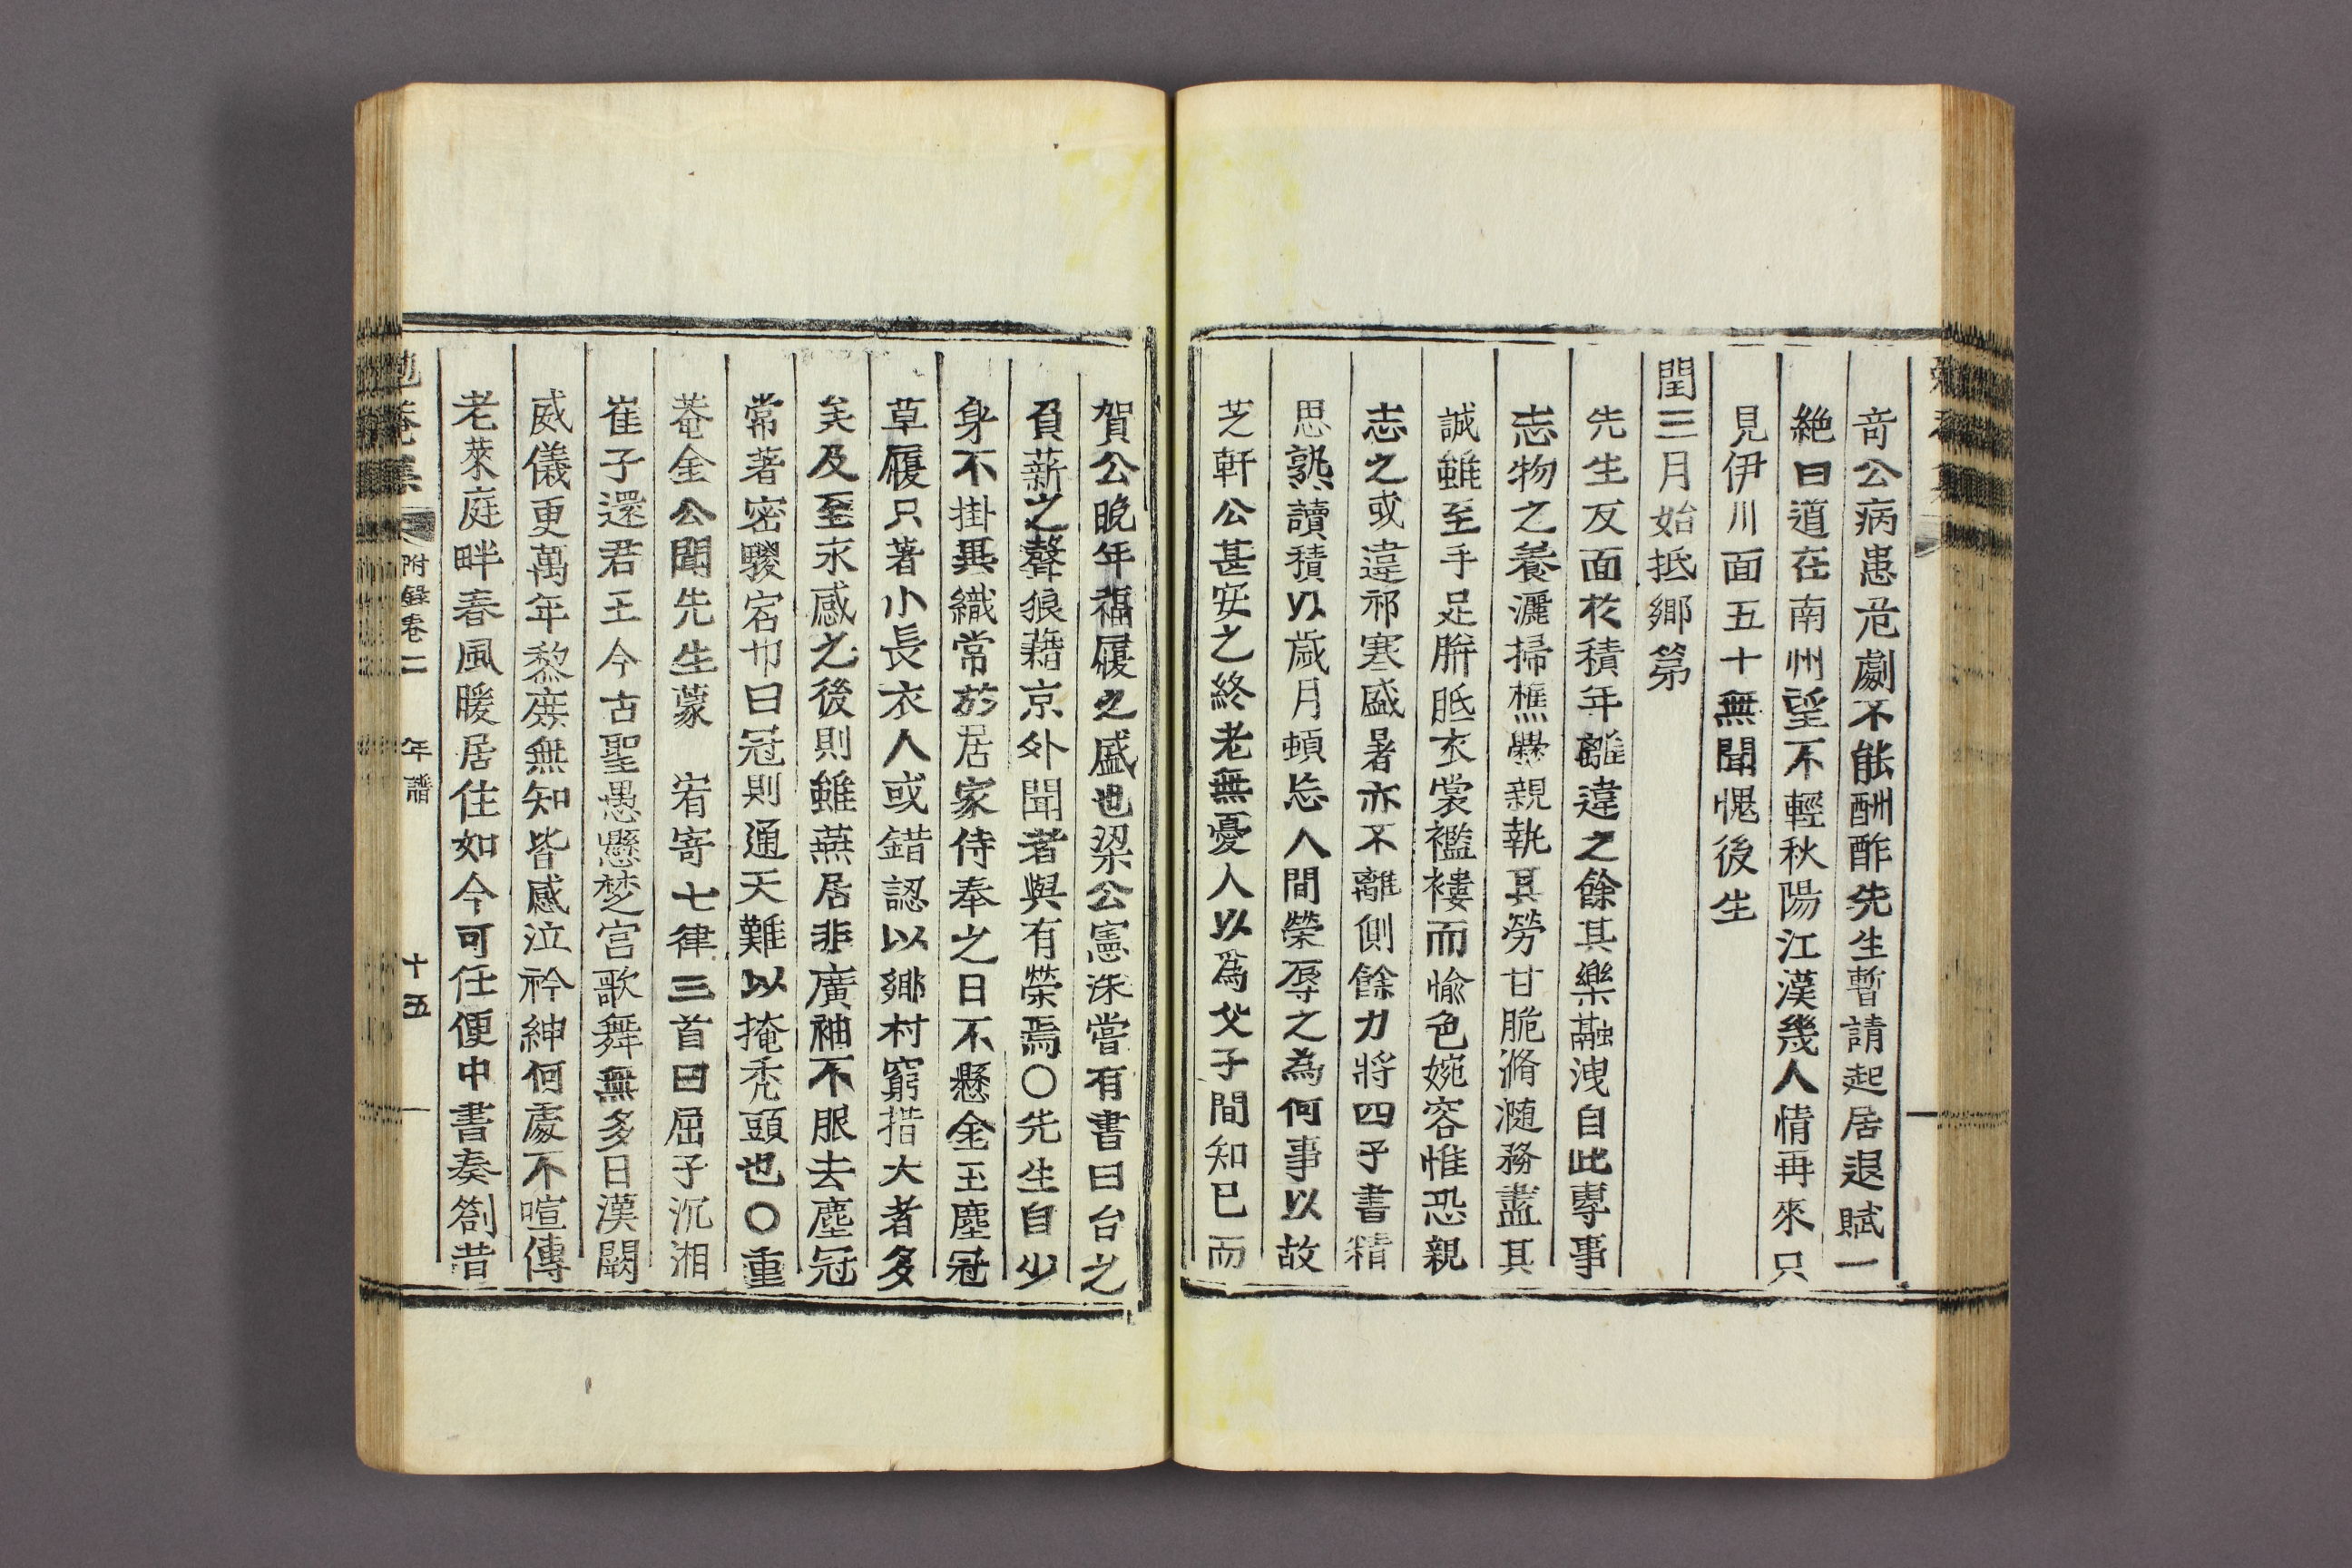 奇公病患危劇不能酬酢先生暫請起居退賦一
絶曰道在南州望不輕秋陽江漢幾人情再來只
見伊川面五十無聞愧後生
閏三月始抵鄉第
先生反面於積年離違之餘其樂融洩自此專事
志物之養灑掃樵爨親執其勞甘脆滫瀡務盡其
誠雖至手足胼胝衣裳襤褸而愉色婉容惟恐親
志之或違祁寒盛暑亦不離側餘力將四子書精
思熟讀積以歲月頓忘人間榮辱之為何事以故
芝軒公甚安之終老無憂人以爲父子間知己而
賀公晚年福履之盛也梁公憲洙嘗有書曰台之
負薪之聲狼藉京外聞者與有榮焉○先生自少
身不掛異織常於居家侍奉之日不懸金玉塵冠
草履只著小長衣人或錯認以鄉村窮措大者多
矣及至永感之後則雖燕居非廣袖不服去塵冠
常著密騣宕巾曰冠則通天難以掩禿頭也○重
菴金公聞先生蒙 宥寄七律三首曰屈子沉湘
崔子還君王今古聖愚懸楚宮歌舞無多日漢闕
威儀更萬年黎庶無知皆感泣衿紳何處不喧傳
老萊庭畔春風暖居住如今可任便中書奏劄昔
勉菴集 附錄卷二 年譜 十五